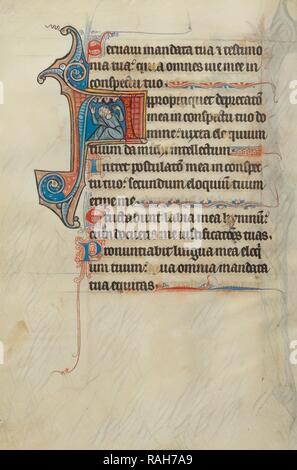 Servavi mandata tua et testimo
nia tua: quia omnes vie mee in
conspectu tuo.
Appropinquet deprecatio
mea in conspectu tuo do
mine: iuxta eloquium
tuum da michi intellectum.
Intret postulatio mea in conspec
tu tuo: secundum eloquium tuum
eripe me.
Eructabunt labia mea hymnum:
cum docueris me iustificationes tuas.
Pronuntiabit lingua mea eloqui
um tuum: quia omnia mandata
tua equitas.
alamy stock photo
RAH7A9
www.alamy.com